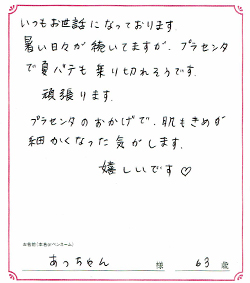 いつもお世話になっております
暑い日々が続いてますが、プラセンタ
で夏バテも乗り切れそうです。
頑張ります。
プラセンタのおかげで、肌もきめが
細かくなった気がします。
嬉しいです♡
お名前(本名orペンネーム)
あっちゃん 様 63 歳